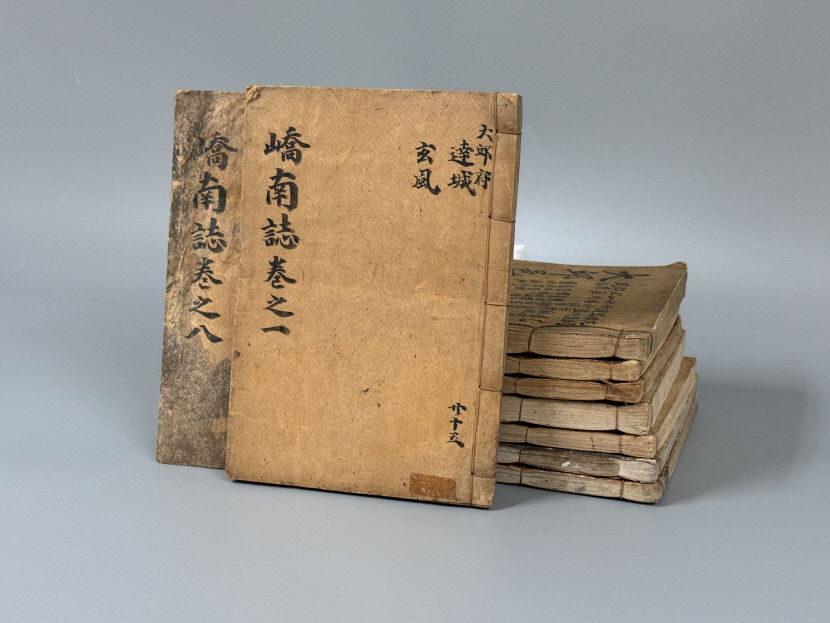 大邱府
達城
玄風
嶠南誌卷之一
共十五
嶠南誌卷之八